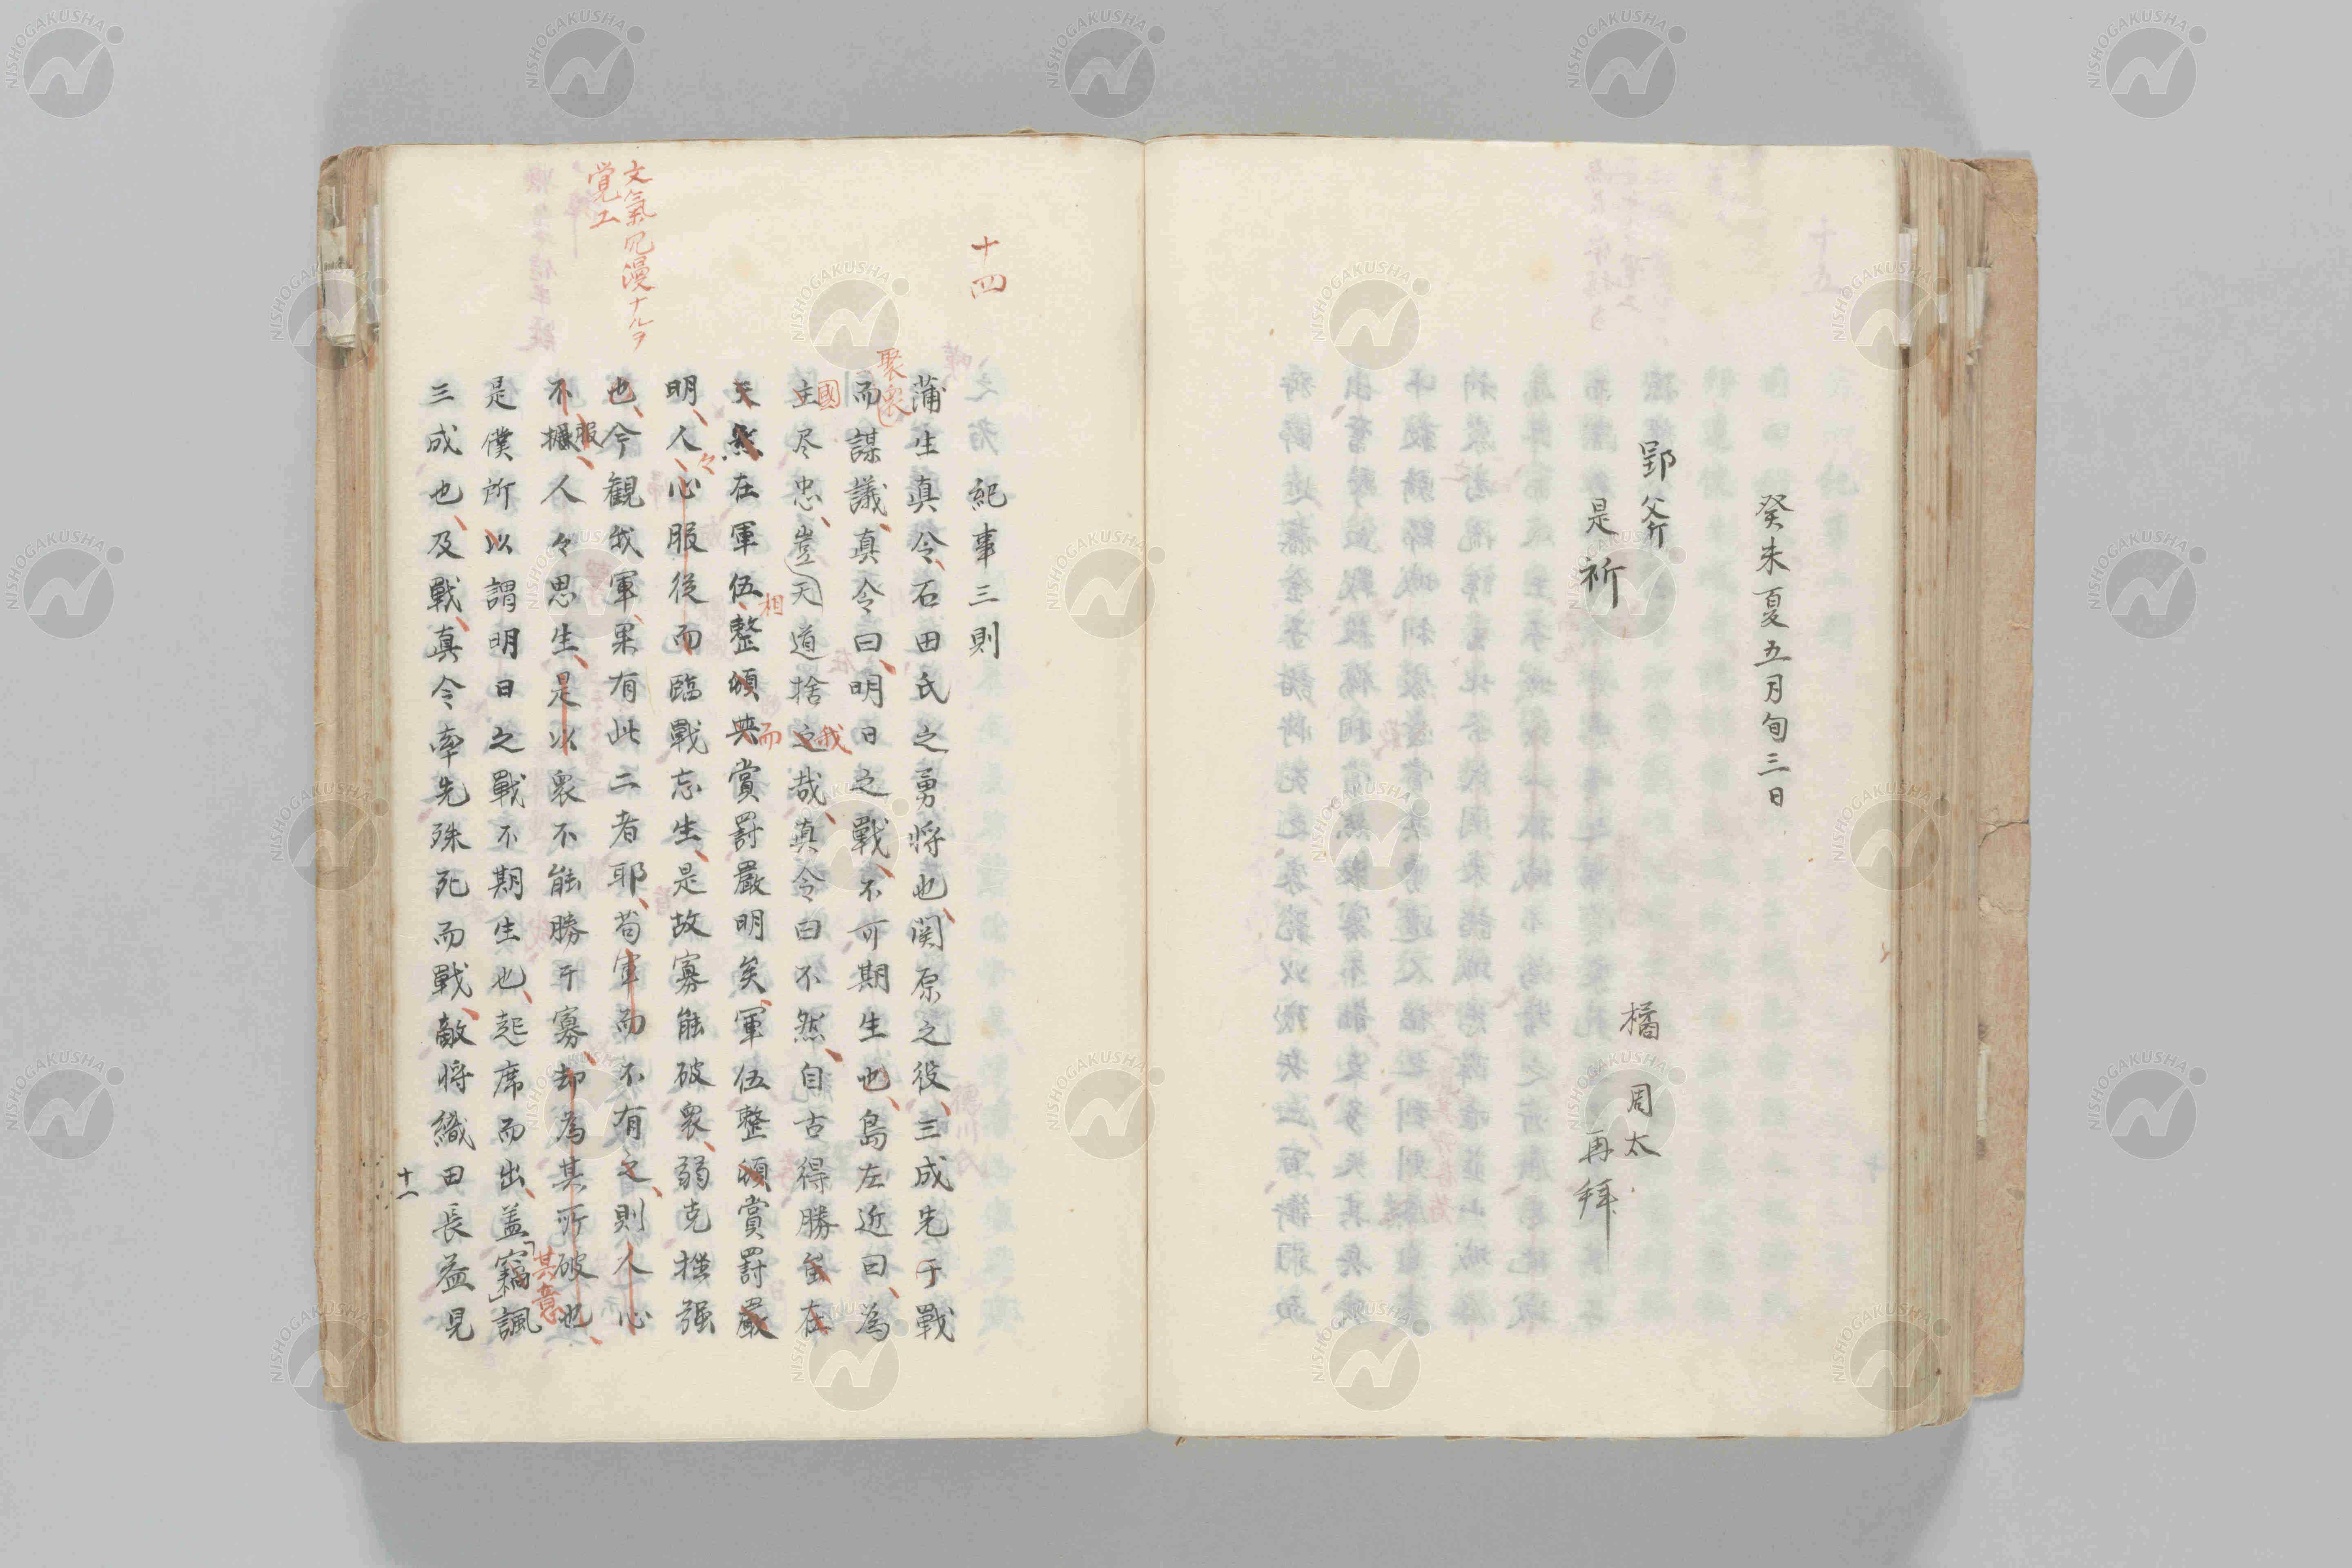 癸未夏五月旬三日
郢斧
是祈
橘周太
再拜
十四
紀事三則
蒲生真令石田氏之勇将也関原之役三成先于戰
聚衆
而謀議真令曰明日之戰不可期生也島左近曰為
國
主尽忠豈天道捨之哉真令曰不然自古得勝負在
我
天然在軍伍整頓與賞罰嚴明矣軍伍整頓賞罰嚴
相
而
明人心服従而臨戰忘生是故寡能破衆弱克挫强
々
文氣冗漫ナルヲ
覚エ
也今観我軍果有此二者耶苟軍而不有之則人心
不服人々思生是以衆不能勝于寡却為其所破也
是僕所以謂明日之戰不期生也起席而出盖竊諷
其意
三成也及戰真令率先殊死而戰敵将織田長益見
十一
NISHOGAKUSHA